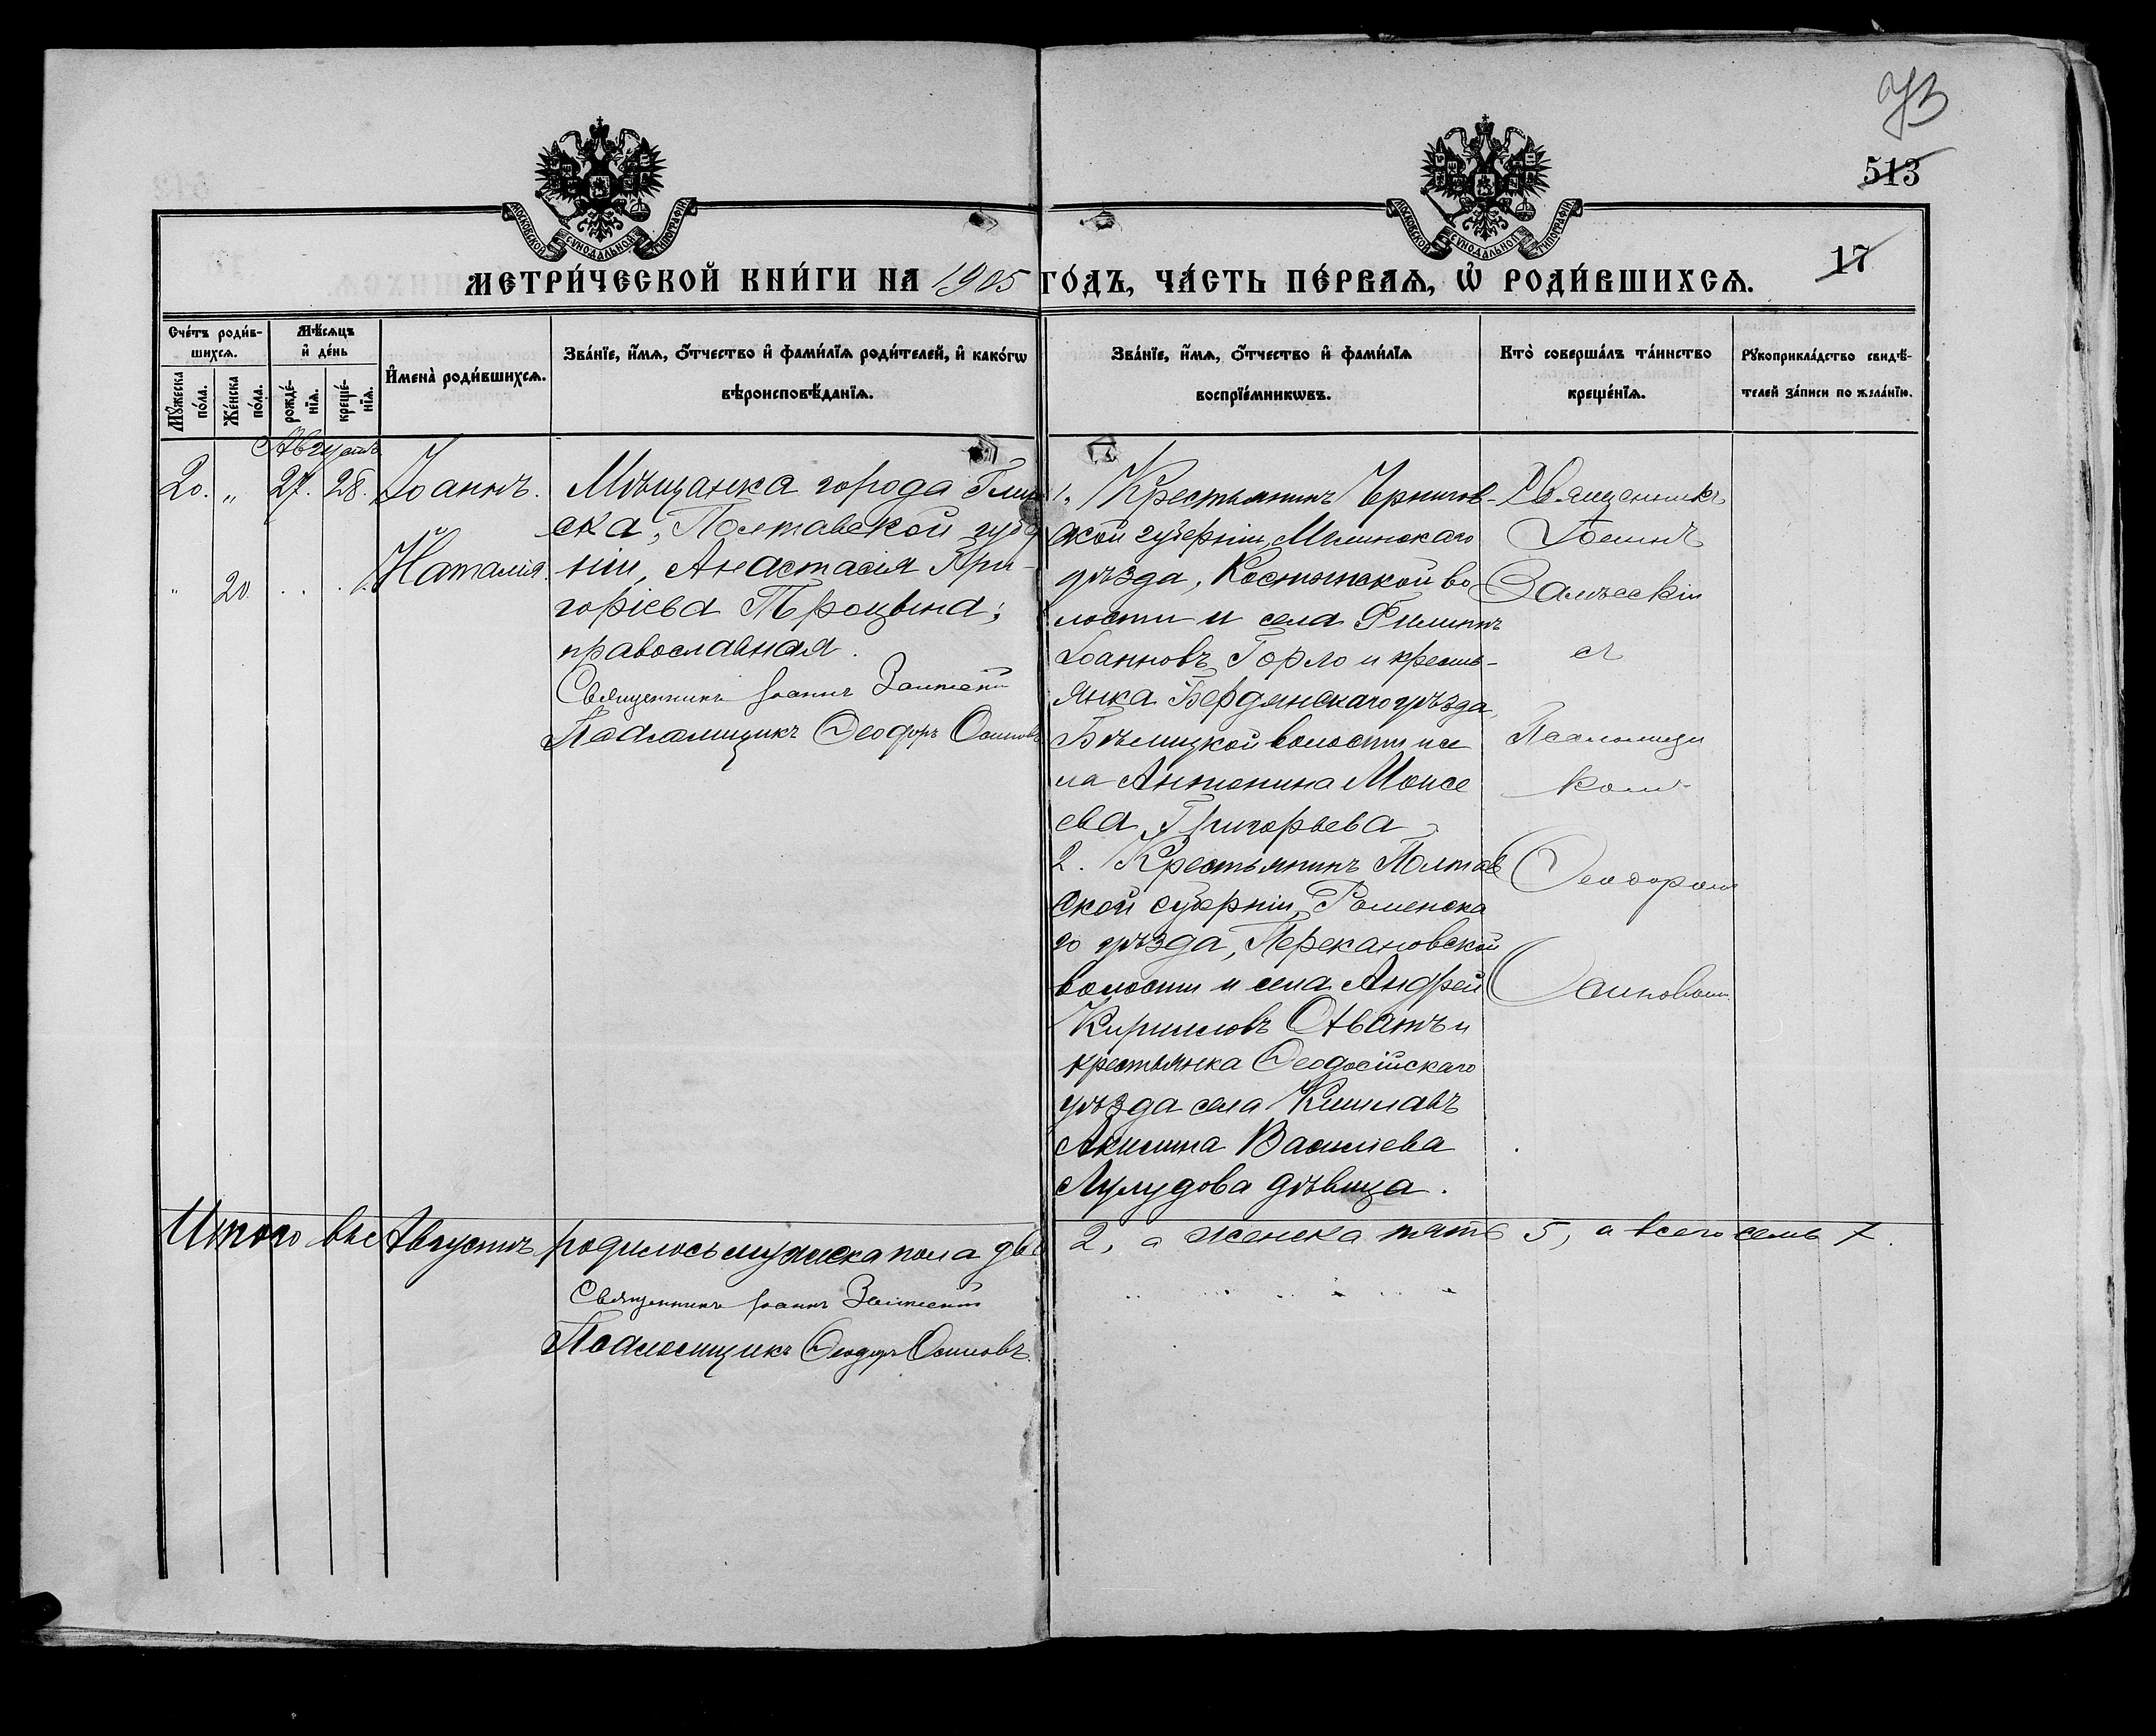 73
513
17
МОСКОВСКОЙ СѴНОДАЛЬНОЙ ТИПОГРАФІИ
МОСКОВСКОЙ СѴНОДАЛЬНОЙ ТИПОГРАФІИ
МЕТРИ́ЧЕСКОЙ КНИ́ГИ НА 1905 ГО́ДЪ, ЧА́СТЬ ПЕ́РВАЯ, Ѡ҆ РОДИ́ВШИХСЯ.
Сче́тъ роди́в-
шихся.
Мѣ́сяцъ
и҆ де́нь
Мꙋ́жеска по́ла.
Же́нска по́ла.
рожде́-
нїя.
креще́-
нїя.
И҆мена̀ роди́вшихся.
Зва́нїе, и҆́мя, ѻ҆́тчество и҆ фами́лїя роди́телей, и҆ како́гѡ
вѣроисповѣ́данїя.
Зва́нїе, и҆́мя, ѻ҆́тчество и҆ фами́лїя
воспрїе́мникѡвъ.
Кто̀ соверша́лъ та́инство
креще́нїя.
Рꙋкоприкла́дство свидѣ́-
телей за́писи по жела́нїю.
Августъ
20. „ 27. 28. Іоаннъ.
„ 20. Наталія.
Мѣщанка города Глин
ска, Полтавской губер
ніи, Анастасія Гри-
горіева Троцына;
православная.
Священникъ Іоаннъ
Псаломщикъ Ѳеодоръ Осиповъ
1. Крестьянинъ Чернигов-
ской губерніи, Мглинскаго
уѣзда, Костянской во
лости и села Филиппъ
Іоанновъ Горло и кресть-
янка Бердянскаго уѣзда,
волости и се
ла Антонина Моисе
ева Григорьева
2. Крестьянинъ Полтав
ской губерніи, Роменска
го уѣзда, Перекоповской
волости и села Андрей
Кирилловъ и
крестьянка Ѳеодосійскаго
уѣзда села Кишлавъ
Акилина Василіева
дѣвица.
Священникъ
Іоаннъ
съ
Псаломщи
комъ
Ѳеодоромъ
Осиповымъ
Итого въ Августѣ родилось мужеска пола два 2, а женска пять 5, а всего семь 7.
Священникъ Іоаннъ
Псаломщикъ Ѳеодоръ Осиповъ.